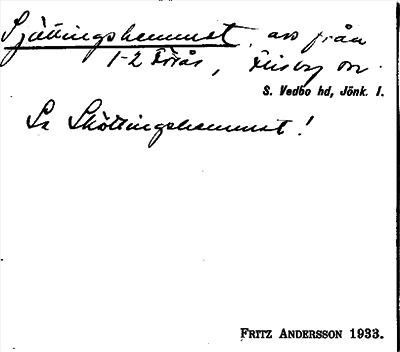 Sjöttingshemmet, avs från
1-2 Törås, Frisby sn.
S. Vedbo hd, Jönk. l.
Se Sköttingshemmet!
FRITZ ANDERSSON 1933.